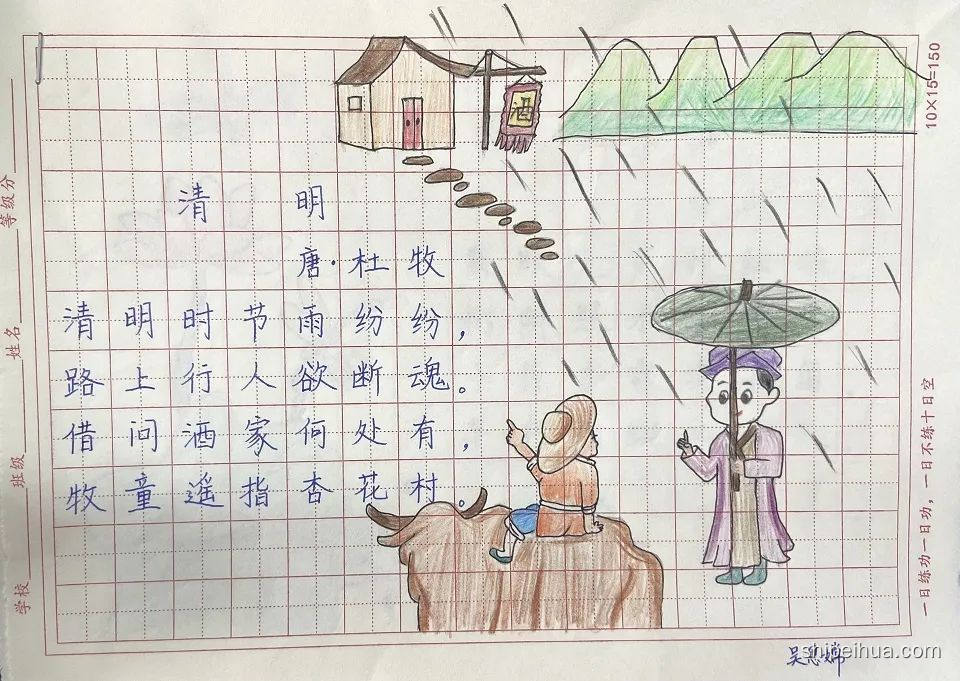 10×15=150
酒
清 明
唐·杜牧
清明时节雨纷纷，
路上行人欲断魂。
借问酒家何处有，
牧童遥指杏花村。
等级分
姓名
班级
学校
一日练功一日功，一日不练十日空
shipeihua.com